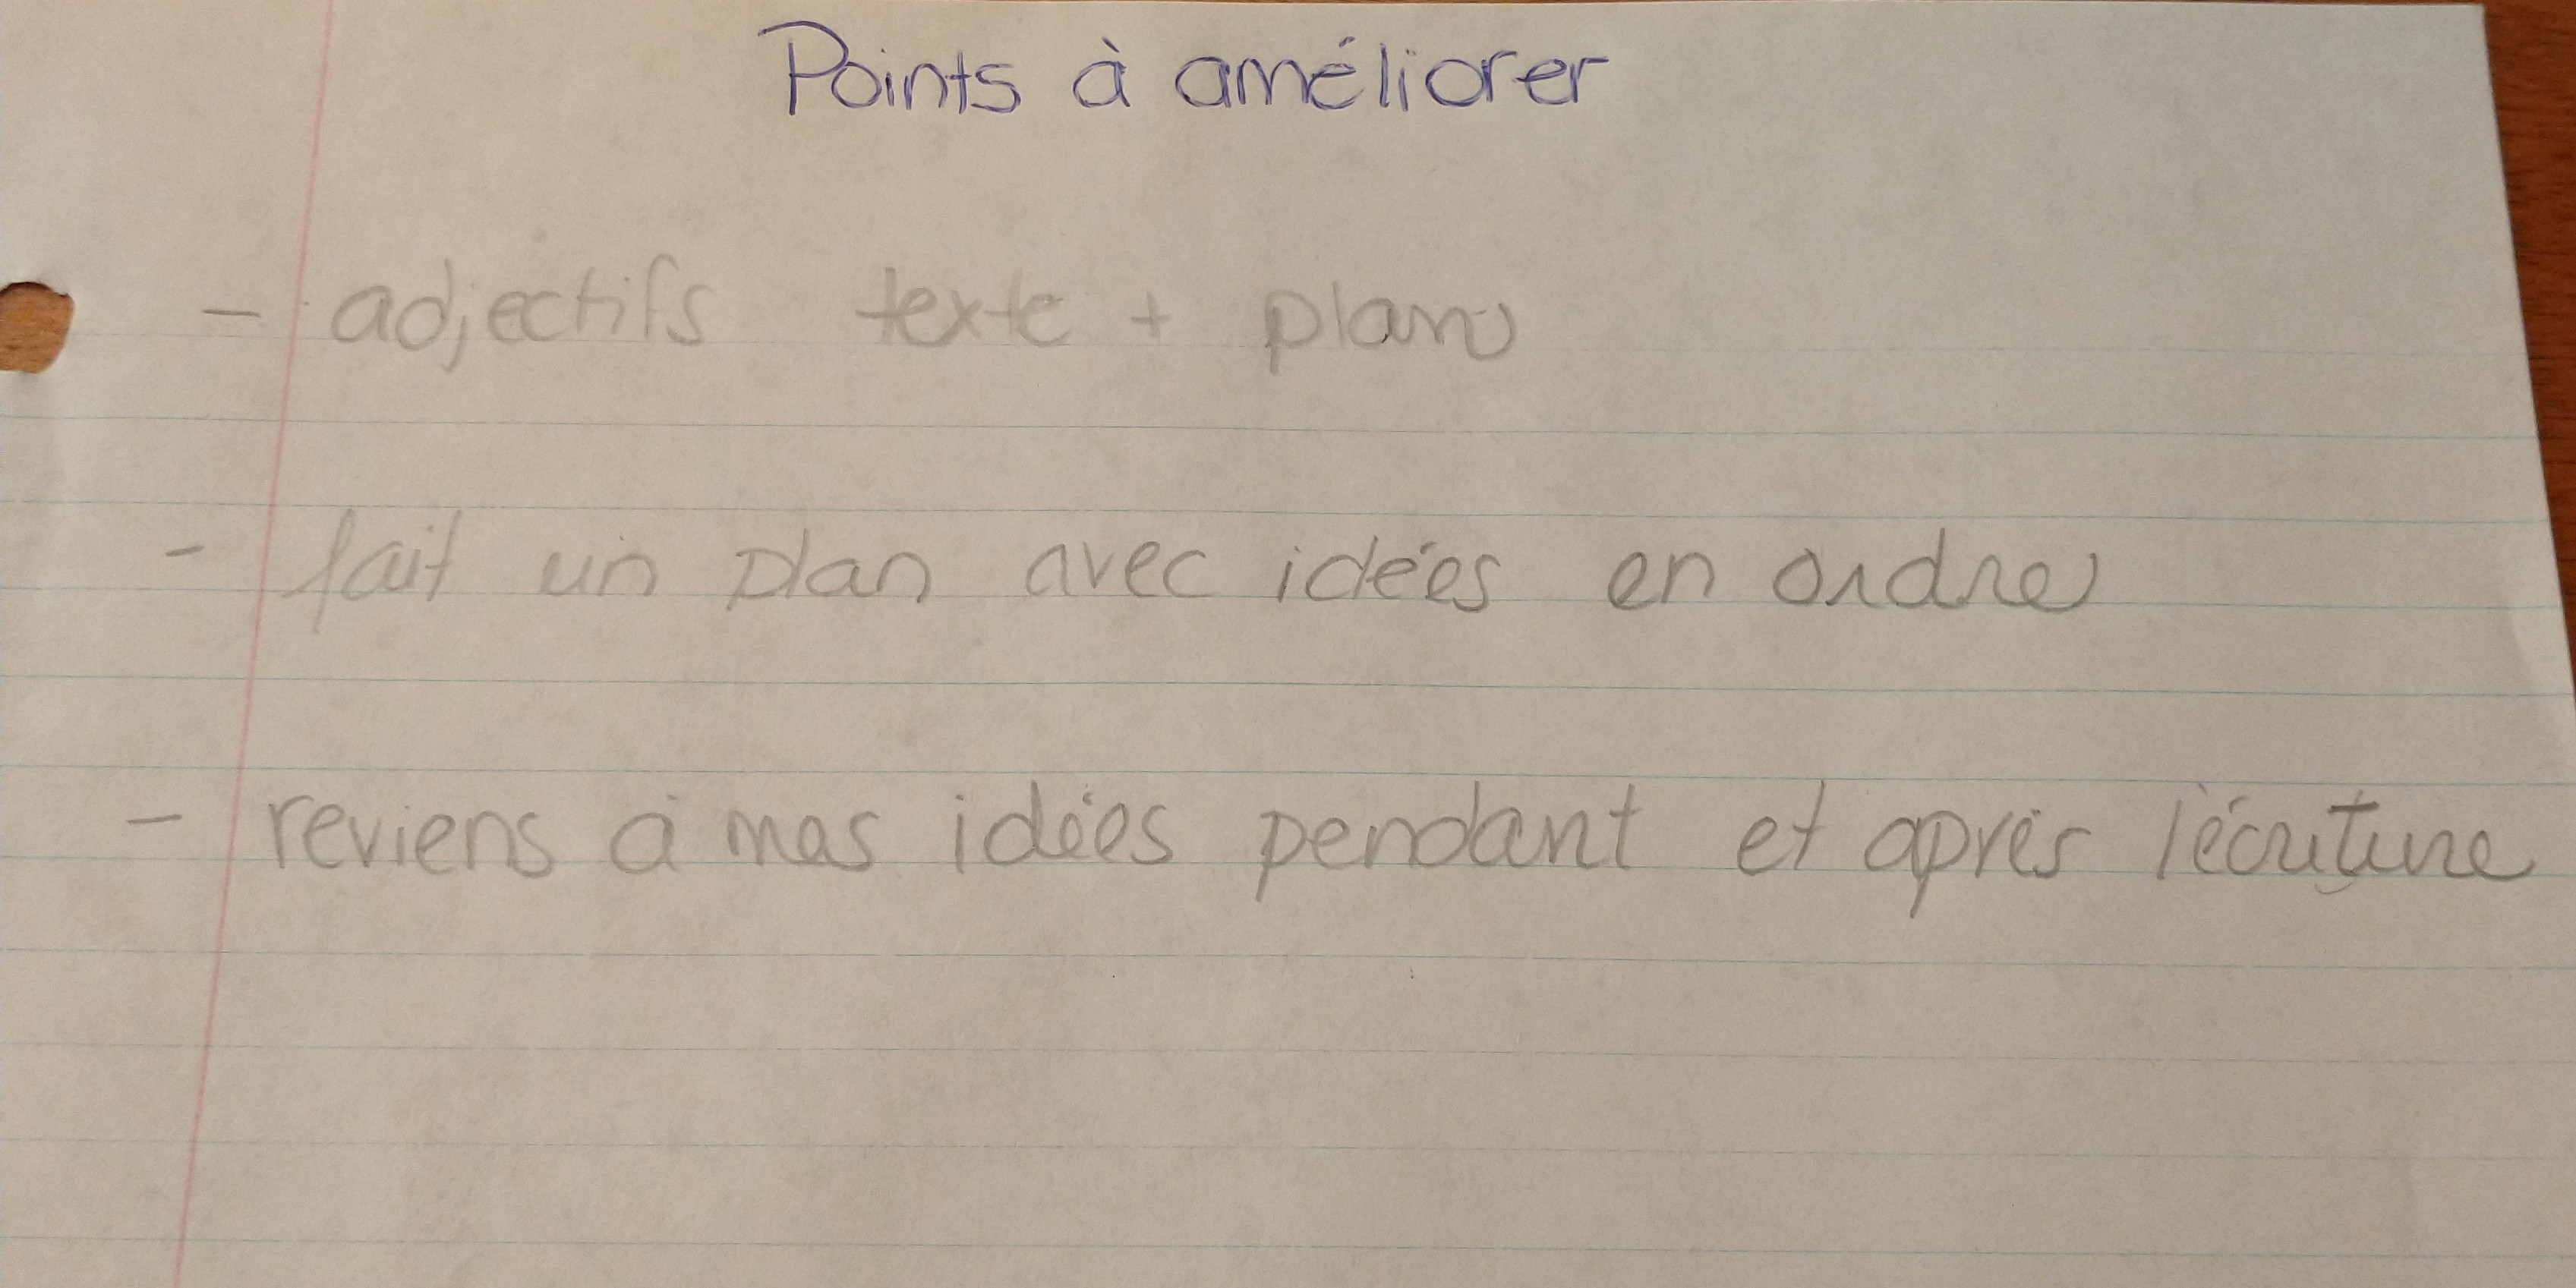 Points à améliorer
- adjectifs texte + plan
- fait un plan avec idées en ordre
- reviens à mes idées pendant et après l'écriture